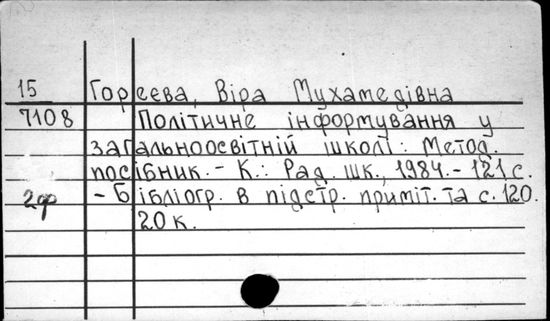 15 Горєєва, Віра Мухамедівна
7108 Політичне інформування у
загальноосвітній школі: Метод.
посібник. - К.: Рад. шк., 1984. - 121 с.
2ф - Бібліогр. в підстр. приміт. та с. 120.
20 к.